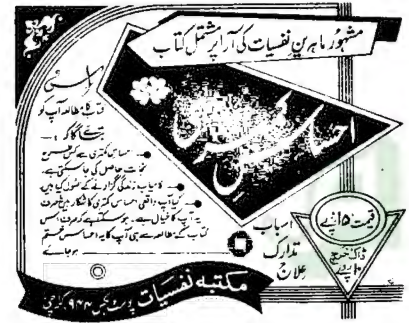 مشہور ماہرینِ نفسیات کی آرا پر مشتمل کتاب
احساسِ کمتری
اس
کتاب کا مطالعہ آپ کو
بتائے گا کہ :۔
احساس کمتری سے کس طرح
نجات حاصل کی جاسکتی ہے۔
کامیاب زندگی گزارنے کے اصول کیا ہیں
کیا آپ واقعی احساس کمتری کا شکار ہیں یا صرف
یہ آپ کا خیال ہے۔ ہوسکتا ہے کہ صرف اس
کتاب کے مطالعہ سے ہی آپ کا یہ احساس ختم
ہوجائے
اسباب
تدارک
علاج
قیمت ۱۵ روپے
ڈاک خرچ
۱۰ روپے
مکتبہ نفسیات پوسٹ بکس ۹۴۴ کراچی